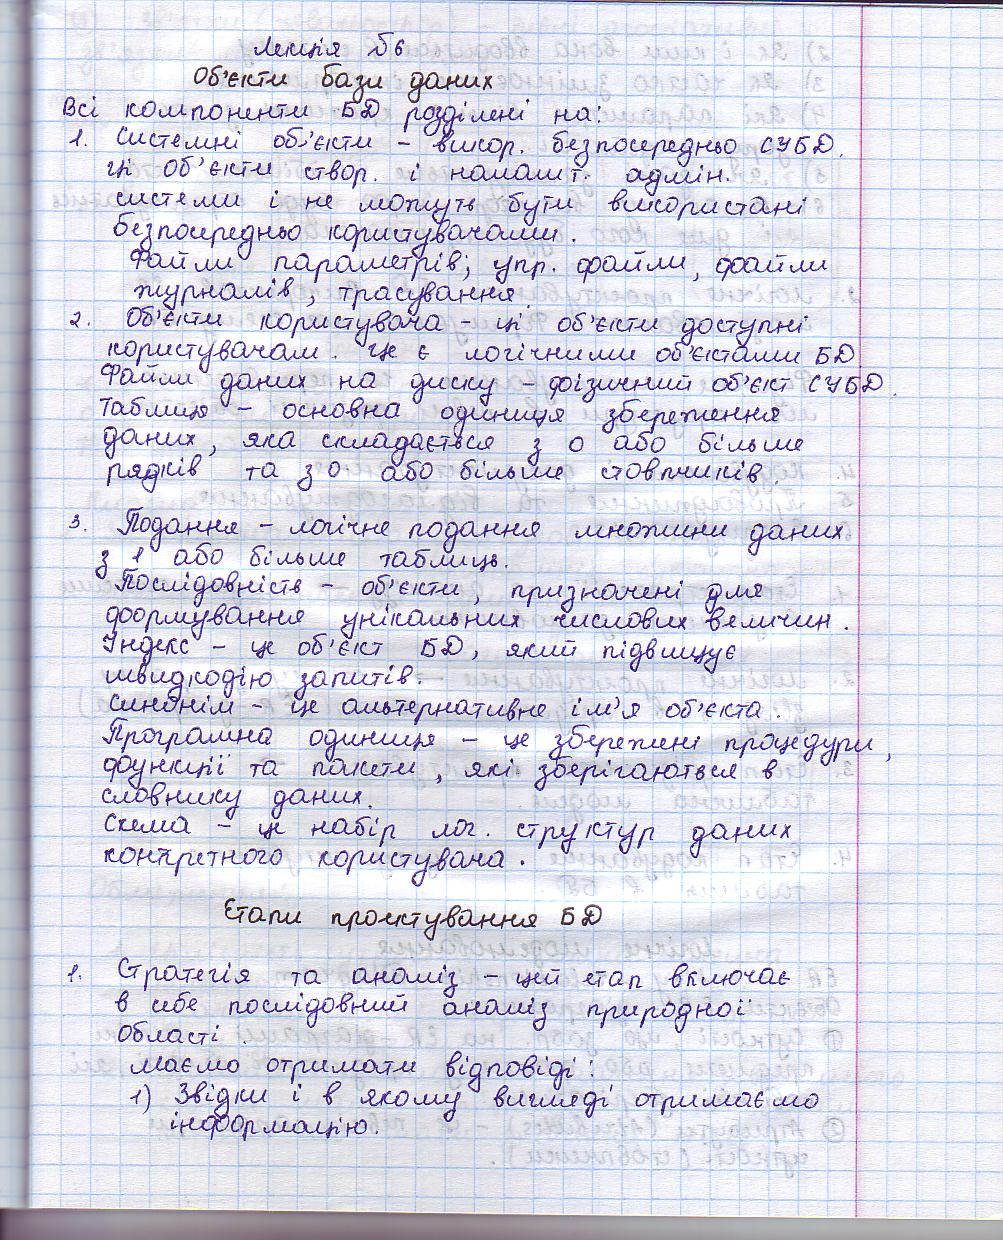 Лекція №6
Об'єкти бази даних
Всі компоненти БД розділені на:
1. Системні об'єкти – викор. безпосередньо СУБД.
Ці об'єкти створ. і налашт. адмін.
системи і не можуть бути використані
безпосередньо користувачами.
Файли параметрів; упр. файли, файли
журналів, трасування.
2. Об'єкти користувача – ці об'єкти доступні
користувачам. Це є логічними об'єктами БД
Файли даних на диску – фізичний об'єкт СУБД.
Таблиця – основна одиниця збереження
даних, яка складається з 0 або більше
рядків та з 0 або більше стовпчиків.
3. Подання – логічне подання множини даних
з 1 або більше таблиць.
Послідовність – об'єкти, призначені для
формування унікальних числових величин.
Індекс – це об'єкт БД, який підвищує
швидкодію запитів.
Синонім – це альтернативне ім'я об'єкта.
Програмна одиниця – це збережені процедури,
функції та пакети, які зберігаються в
словнику даних.
Схема – це набір лог. структур даних
конкретного користувача.
Етапи проєктування БД
1. Стратегія та аналіз – цей етап включає
в себе послідовний аналіз природної
області.
Маємо отримати відповіді:
1) Звідки і в якому вигляді отримаємо
інформацію.